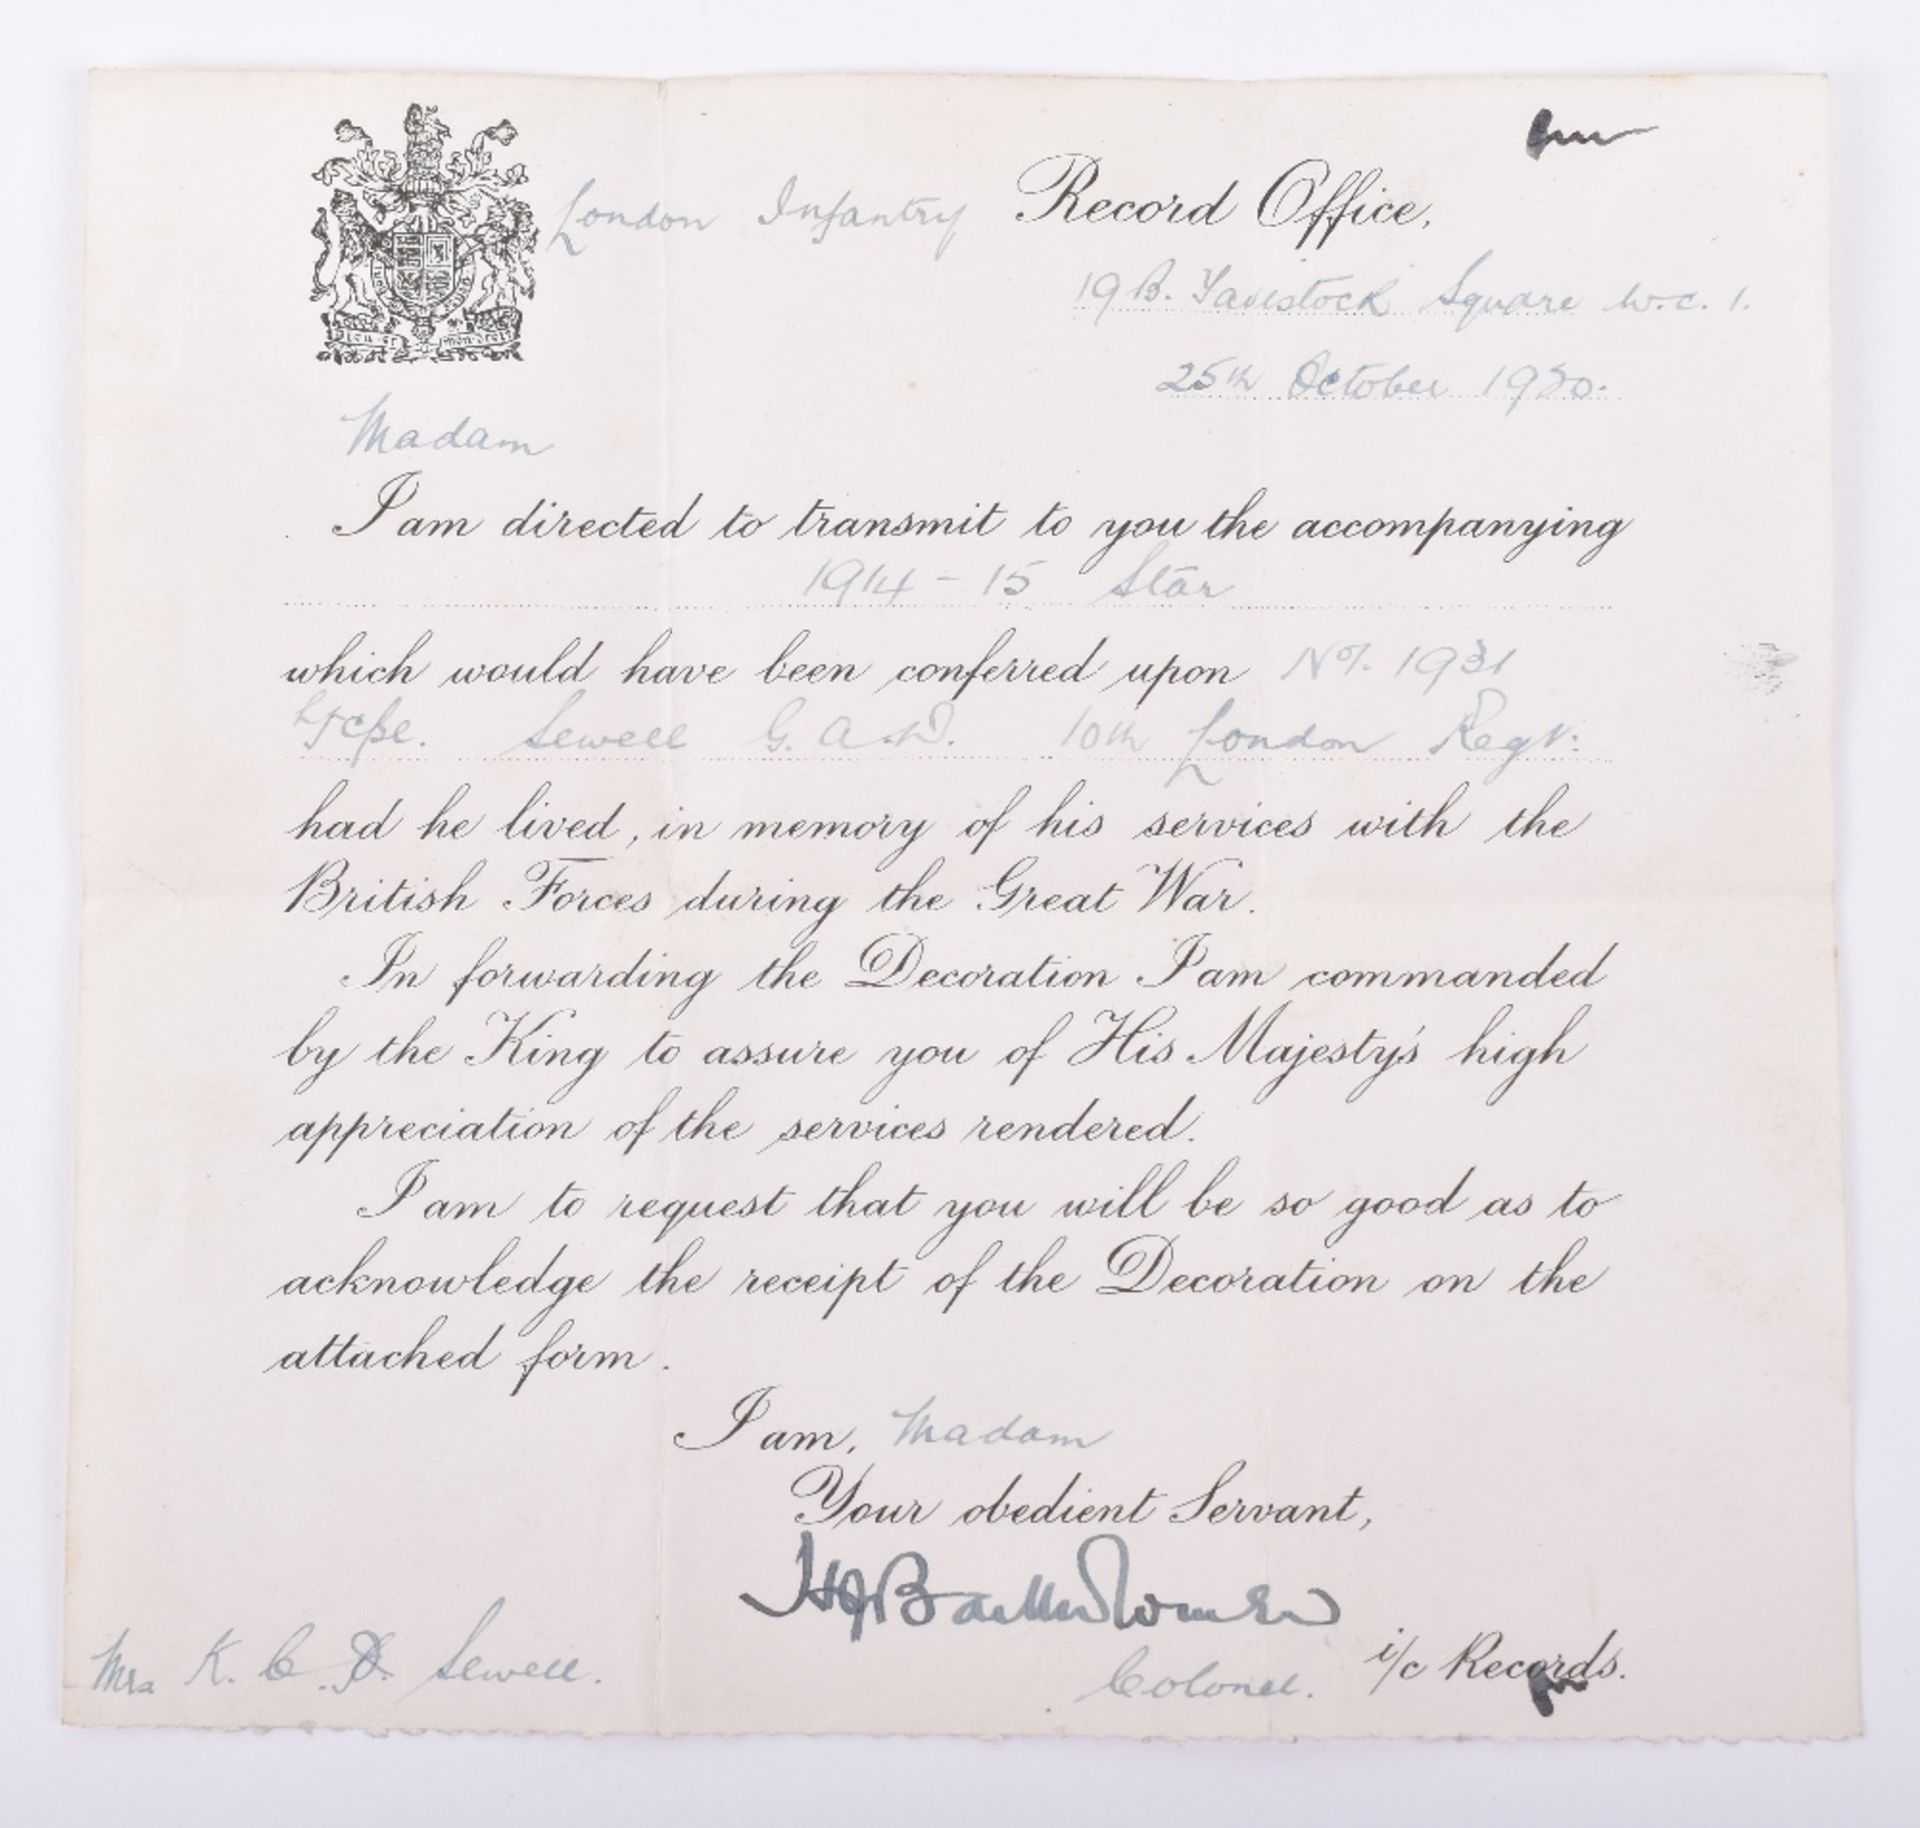 London Infantry Record Office,
19B. Tavistock Square W.C. 1.
25th October 1920.
Madam
I am directed to transmit to you the accompanying
1914-15 Star
which would have been conferred upon No. 1931
L/Cpl. Sewell G. A. D. 10th London Regt.
had he lived, in memory of his services with the
British Forces during the Great War.
In forwarding the Decoration I am commanded
by the King to assure you of His Majesty's high
appreciation of the services rendered.
I am to request that you will be so good as to
acknowledge the receipt of the Decoration on the
attached form.
I am, Madam
Your obedient Servant,
Colonel. i/c Records.
Mrs K. C. D. Sewell.